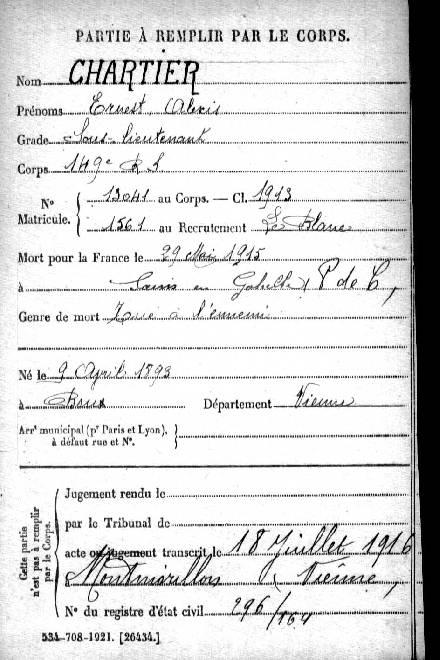 PARTIE À REMPLIR PAR LE CORPS.
Nom CHARTIER
Prénoms Ernest Alexis
Grade Sous-lieutenant
Corps 149e R I
N° Matricule. { 13041 au Corps. — Cl. 1913
1561 au Recrutement Le Blanc
Mort pour la France le 29 Mai 1915
à Sains en Gohelle (P de C,
Genre de mort Tué à l'ennemi
Né le 9 Avril 1893
à Département Vienne
Arrt municipal (pr Paris et Lyon), à défaut rue et N°. }
Cette partie n'est pas à remplir par le Corps.
Jugement rendu le
par le Tribunal de
acte ou jugement transcrit le 18 Juillet 1916
à Montmorillon (Vienne,
N° du registre d'état civil 296/164
534-708-1921. [26434.]